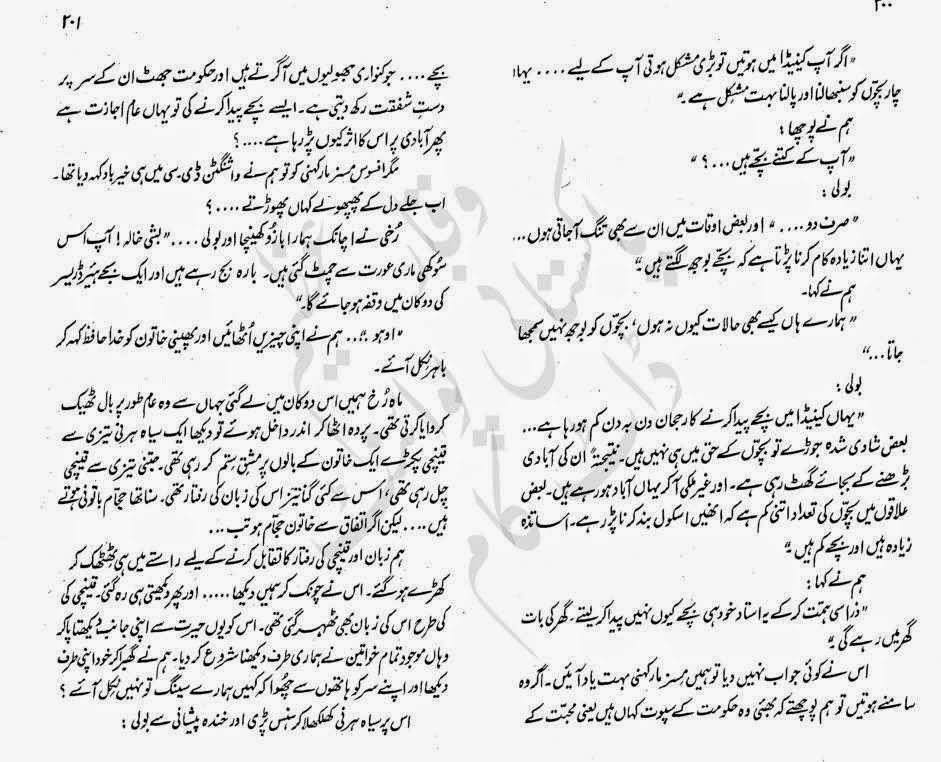 ۲۰۰
"اگر آپ کینیڈا میں ہوتیں تو بڑی مشکل ہوتی آپ کے لیے .... یہاں
چار بچّوں کو سنبھالنا اور پالنا بہت مشکل ہے۔"
ہم نے پوچھا:
"آپ کے کتنے بچّے ہیں ...؟"
بولی:
"صرف دو .... " اور بعض اوقات میں ان سے بھی تنگ آجاتی ہوں ...
یہاں اتنا زیادہ کام کرنا پڑتا ہے کہ بچّے بوجھ لگتے ہیں۔"
ہم نے کہا۔
"ہمارے ہاں کیسے بھی حالات کیوں نہ ہوں، بچّوں کو بوجھ نہیں سمجھا
جاتا ..."
بولی:
"یہاں کینیڈا میں بچّے پیدا کرنے کا رجحان دن بہ دن کم ہو رہا ہے ...
بعض شادی شدہ جوڑے تو بچّوں کے حق میں ہی نہیں ہیں۔ نتیجتہً ان کی آبادی
بڑھنے کے بجائے گھٹ رہی ہے۔ اور غیر ملکی آکر یہاں آباد ہو رہے ہیں۔ بعض
علاقوں میں بچّوں کی تعداد اتنی کم ہے کہ انھیں اسکول بند کرنا پڑ رہے ہے۔ اساتذہ
زیادہ ہیں اور بچّے کم ہیں۔"
ہم نے کہا:
"ذرا سی ہمّت کر کے یہ استاد خود ہی بچّے کیوں نہیں پیدا کر لیتے۔ گھر کی بات
گھر میں رہے گی۔"
اس نے کوئی جواب نہیں دیا تو ہمیں مسز بارکہنی بہت یاد آئیں۔ اگر وہ
سامنے ہوتیں تو ہم پوچھتے کہ بھئی وہ حکومت کے سپوت کہاں ہیں یعنی محبّت کے
۲۰۱
بچّے .... جو کنواری جھولیوں میں آگرتے ہیں اور حکومت جھٹ ان کے سر پر
دستِ شفقت رکھ دیتی ہے۔ ایسے بچّے پیدا کرنے کی تو یہاں عام اجازت ہے
پھر آبادی پر اس کا اثر کیوں پڑ رہا ہے ....؟
مگر افسوس مسز بارکہنی کو تو ہم نے واشنگٹن ڈی۔سی میں ہی خیرباد کہہ دیا تھا۔
اب جلے دل کے پھپھولے کہاں پھوڑتے ....؟
رُخی نے اچانک ہمارا بازو کھینچا اور بولی .... "بشی خالہ! آپ اس
سوکھی ماری عورت سے چمٹ گئی ہیں۔ بارہ بج رہے ہیں اور ایک بجے ہیئر ڈریسر
کی دوکان میں وقفہ ہو جائے گا۔"
"اوہو"... ہم نے اپنی چیزیں اُٹھائیں اور پھینی خاتون کو خدا حافظ کہہ کر
باہر نکل آئے۔
ماہ رُخ ہمیں اس دوکان میں لے گئی جہاں سے وہ عام طور پر بال ٹھیک
کروایا کرتی تھی۔ پردہ اٹھا کر اندر داخل ہوئے تو دیکھا ایک سیاہ ہرنی تیزی سے
قینچی پکڑے ایک خاتون کے بالوں پر مشقِ ستم کر رہی تھی۔ جتنی تیزی سے قینچی
چل رہی تھی، اس سے کئی گنا تیز اس کی زبان کی رفتار تھی۔ سنا تھا حجام باتونی ہوتے
ہیں .... لیکن اگر اتفاق سے خاتون حجام ہو تب ...
ہم زبان اور قینچی کی رفتار کا تقابل کرنے کے لیے راستے میں ہی ٹھٹھک کر
کھڑے ہو گئے۔ اس نے چونک کر ہمیں دیکھا ..... اور پھر دیکھتی ہی رہ گئی۔ قینچی کی
طرح اس کی زبان بھی ٹھہر گئی تھی۔ اس کو یوں حیرت سے اپنی جانب دیکھتا پا کر
وہاں موجود تمام خواتین نے ہماری طرف دیکھنا شروع کر دیا۔ ہم نے گھبرا کر خود اپنی طرف
دیکھا اور اپنے سر کو ہاتھوں سے چھُوا کہ کہیں ہمارے سینگ تو نہیں نکل آئے؟
اس پر سیاہ ہرنی کھلکھلا کر ہنس پڑی اور خندہ پیشانی سے بولی: